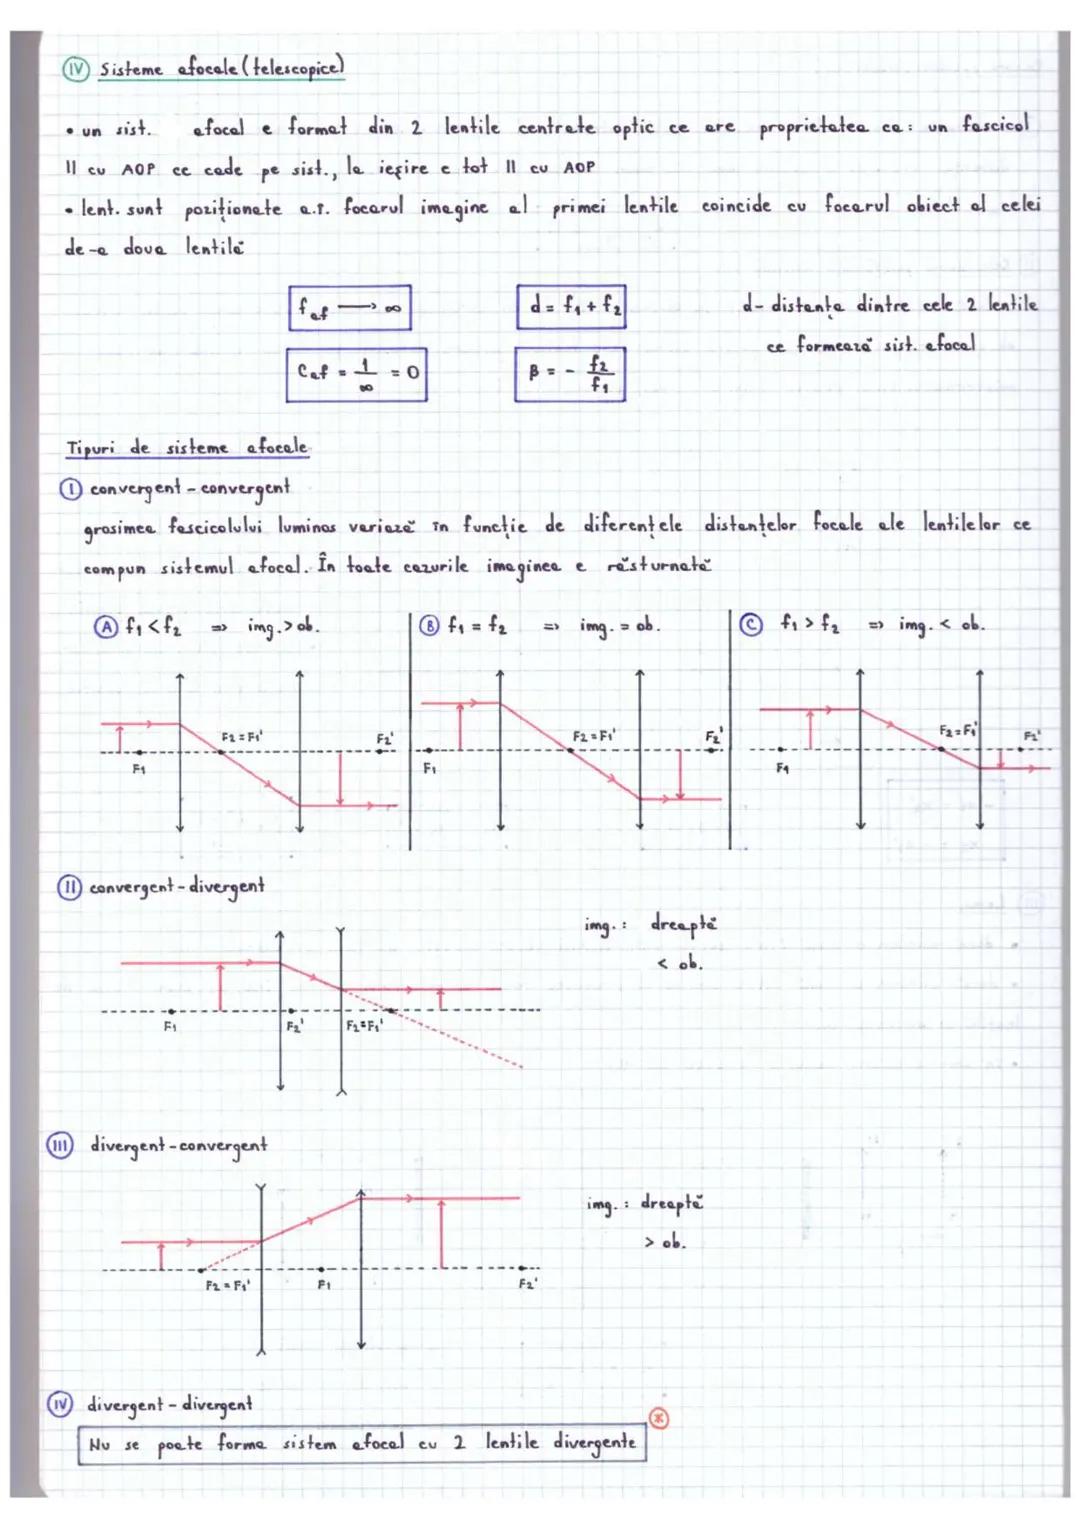 IV Sisteme afocale (telescopice)
• un sist. afocal e format din 2 lentile centrate optic ce are proprietatea ca: un fascicol
|| cu AOP ce cade pe sist., la ieșire e tot || cu AOP
• lent. sunt poziționate a.î. focarul imagine al primei lentile coincide cu focarul obiect al celei
de-a doua lentilă
f af → ∞
d = f₁ + f₂
d - distanța dintre cele 2 lentile
ce formează sist. afocal
C af = 1/∞ = 0
β = - f₂/f₁
Tipuri de sisteme afocale
I convergent - convergent
grosimea fascicolului luminos variază în funcție de diferențele distanțelor focale ale lentilelor ce
compun sistemul afocal. În toate cazurile imaginea e răsturnată
A f₁ < f₂ => img. > ob.
B f₁ = f₂ => img. = ob.
C f₁ > f₂ => img. < ob.
F₂ = F₁' F₂'
F₁
F₂ = F₁' F₂'
F₁
F₂ = F₁' F₂'
F₁
II convergent - divergent
img.: dreaptă
< ob.
F₁ F₂' F₂ = F₁'
III divergent - convergent
img.: dreaptă
> ob.
F₂ = F₁' F₁ F₂'
IV divergent - divergent
Nu se poate forma sistem afocal cu 2 lentile divergente *